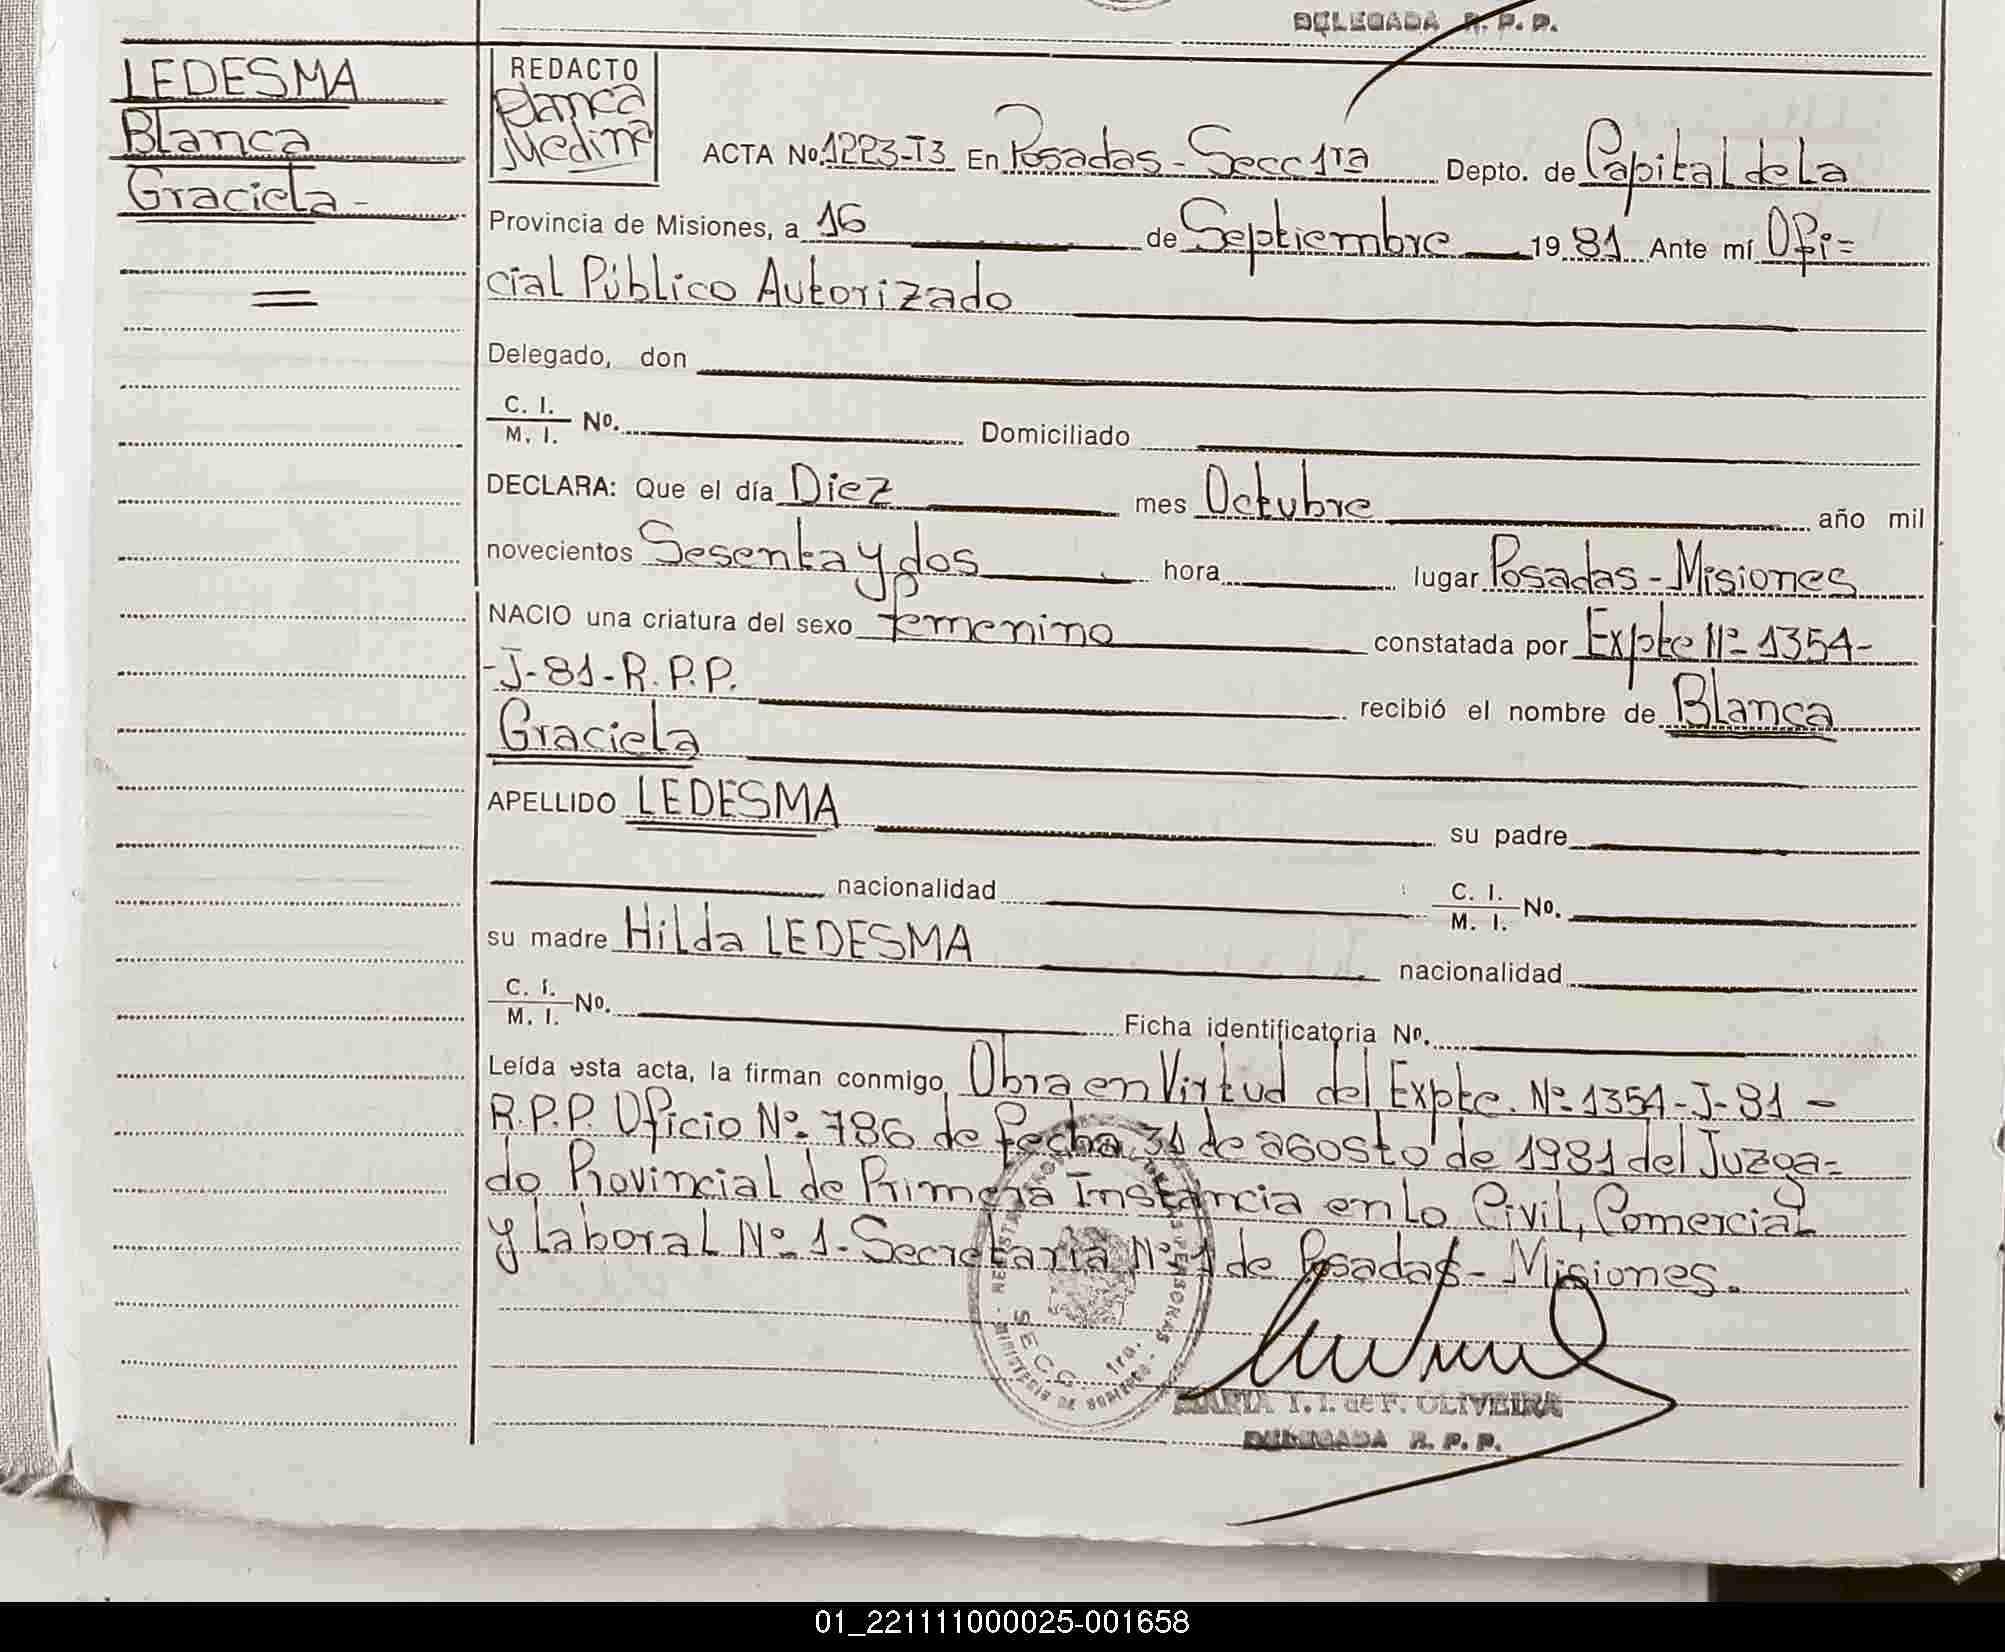 DELEGADA R. P. P.
LEDESMA
Blanca
Graciela -
REDACTO
Blanca
Medina
ACTA No. 1223-T3 En Posadas - Secc 1ra Depto. de Capital de La
Provincia de Misiones, a 16 de Septiembre 19 81 Ante mí Ofi=
cial Público Autorizado
Delegado, don
C. I.
M. I. No. Domiciliado
DECLARA: Que el día Diez mes Octubre año mil
novecientos Sesenta y dos hora lugar Posadas - Misiones
NACIO una criatura del sexo femenino constatada por Expte Nº 1354-
-J-81-R.P.P. recibió el nombre de Blanca
Graciela
APELLIDO LEDESMA su padre
nacionalidad C. I.
M. I. No.
su madre Hilda LEDESMA nacionalidad
C. I.
M. I. No. Ficha identificatoria Nº.
Leída esta acta, la firman conmigo Obra en Virtud del Expte. Nº 1354-J-81 -
R.P.P. Oficio Nº 786 de fecha 31 de agosto de 1981 del Juzga=
do Provincial de Primera Instancia en Lo Civil, Comercial
y laboral Nº 1 - Secretaria Nº 1 de Posadas - Misiones.
SECC. 1ra.
MINISTERIO DE GOBIERNO - PERSONAS
MARIA T. I. de F. OLIVEIRA
DELEGADA R. P. P.
01_221111000025-001658